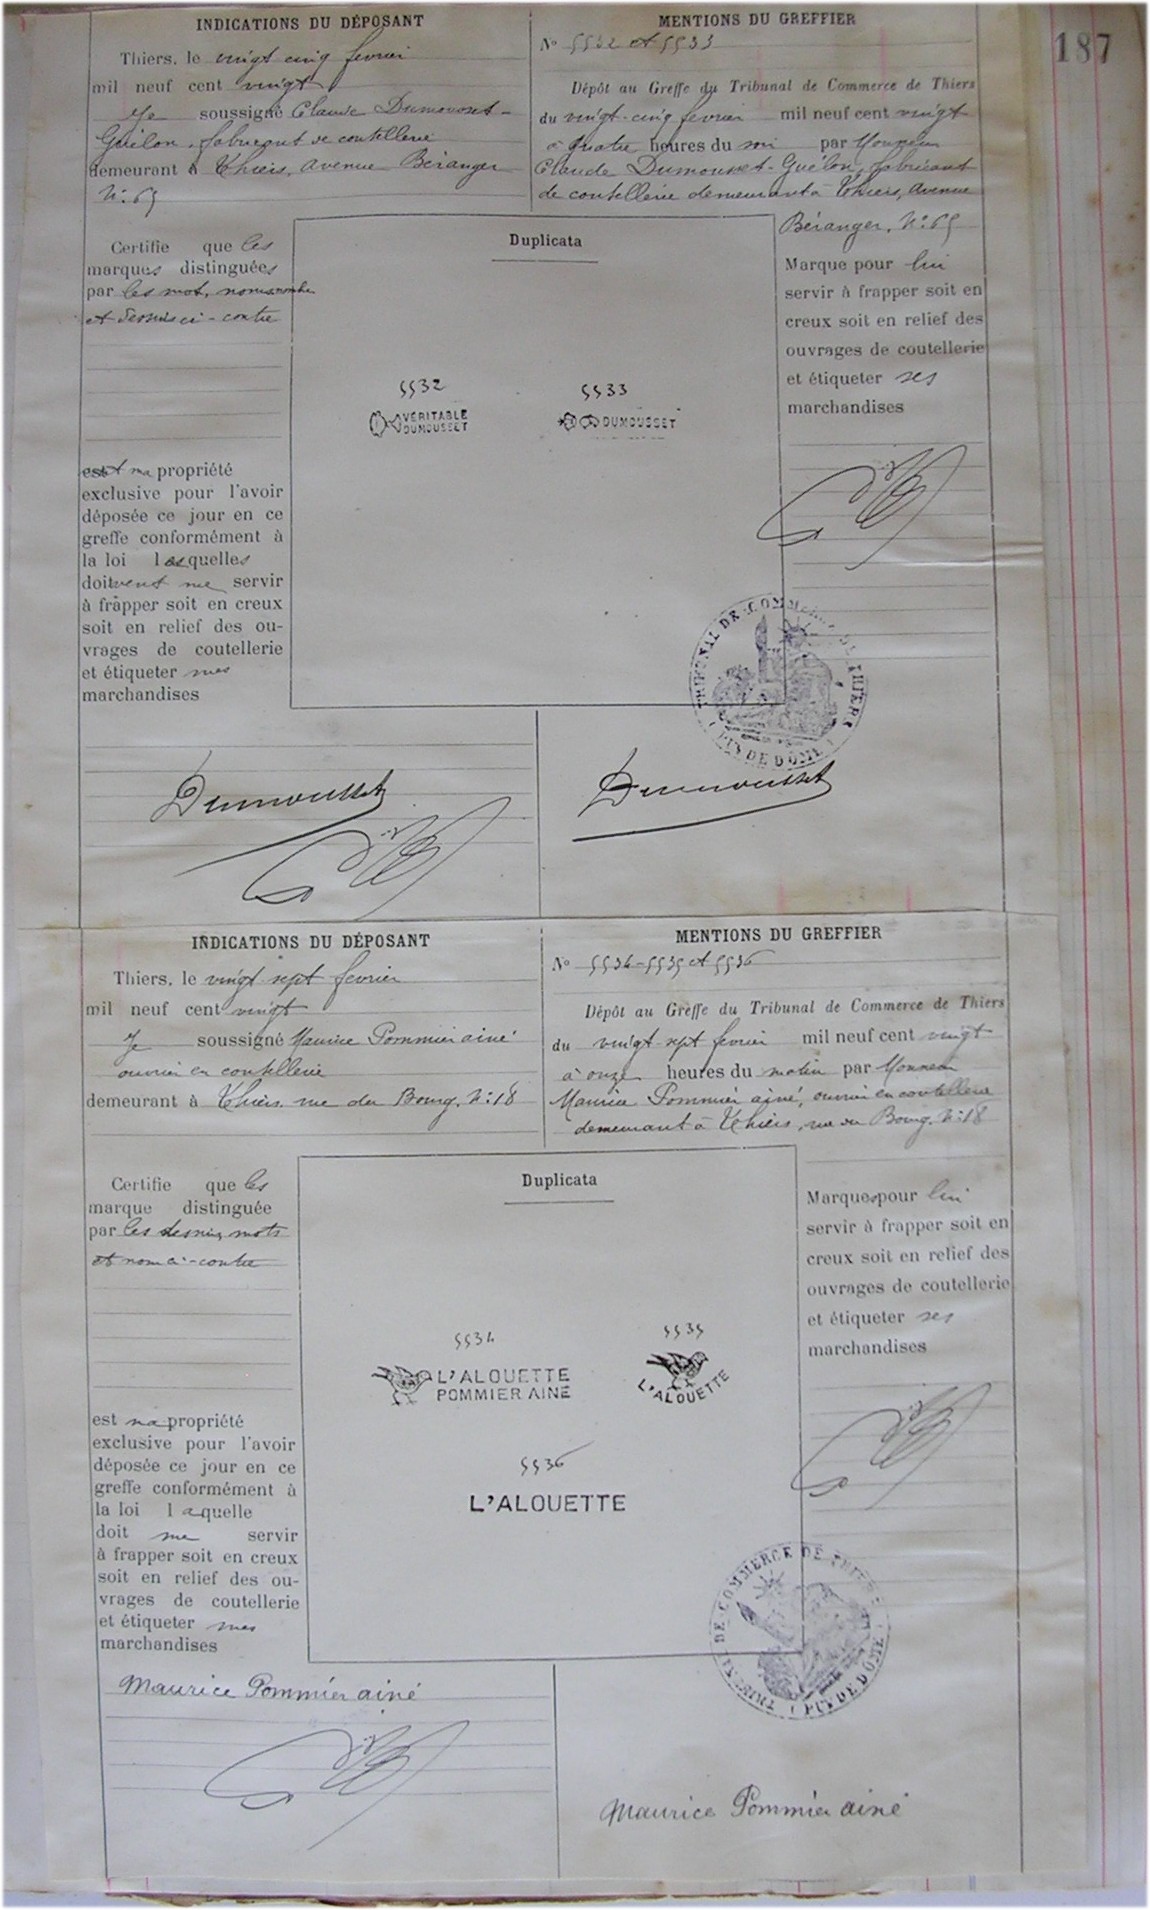 187
INDICATIONS DU DÉPOSANT
Thiers, le vingt cinq fevrier
mil neuf cent vingt
Je soussigné Claude Dumousset-
Guélon, fabricant de coutellerie
demeurant à Thiers, avenue Béranger
N: 65
Certifie que les
marques distinguées
par les mot, nom
et dessins ci-contre
est ma propriété
exclusive pour l'avoir
déposée ce jour en ce
greffe conformément à
la loi lesquelles
doivent me servir
à frapper soit en creux
soit en relief des ou-
vrages de coutellerie
et étiqueter mes
marchandises
Duplicata
5532
VÉRITABLE
DUMOUSSET
5533
DUMOUSSET
MENTIONS DU GREFFIER
No 5532 et 5533
Dépôt au Greffe du Tribunal de Commerce de Thiers
du vingt-cinq fevrier mil neuf cent vingt
à quatre heures du soir par Monsieur
Claude Dumousset-Guélon, fabricant
de coutellerie demeurant à Thiers, avenue
Béranger, N: 65
Marque pour lui
servir à frapper soit en
creux soit en relief des
ouvrages de coutellerie
et étiqueter ses
marchandises
TRIBUNAL DE COMMERCE DE THIERS
(PUY DE DÔME)
Dumousset
Dumousset
INDICATIONS DU DÉPOSANT
Thiers, le vingt sept fevrier
mil neuf cent vingt
Je soussigné Maurice Pommier ainé
ouvrier en coutellerie
demeurant à Thiers, rue du Bourg, N: 18
Certifie que les
marque distinguée
par les dessins, mots
et nom ci-contre
est ma propriété
exclusive pour l'avoir
déposée ce jour en ce
greffe conformément à
la loi laquelle
doit me servir
à frapper soit en creux
soit en relief des ou-
vrages de coutellerie
et étiqueter mes
marchandises
Duplicata
5534
L'ALOUETTE
POMMIER AINÉ
5535
L'ALOUETTE
5536
L'ALOUETTE
MENTIONS DU GREFFIER
No 5534-5535 et 5536
Dépôt au Greffe du Tribunal de Commerce de Thiers
du vingt sept fevrier mil neuf cent vingt
à onze heures du matin par Monsieur
Maurice Pommier ainé, ouvrier en coutellerie
demeurant à Thiers, rue du Bourg, N: 18
Marques pour lui
servir à frapper soit en
creux soit en relief des
ouvrages de coutellerie
et étiqueter ses
marchandises
TRIBUNAL DE COMMERCE DE THIERS
(PUY DE DÔME)
Maurice Pommier ainé
Maurice Pommier ainé